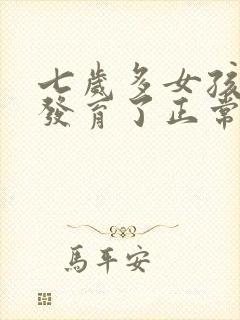 七歲多女孩
發育了正常
馬平安